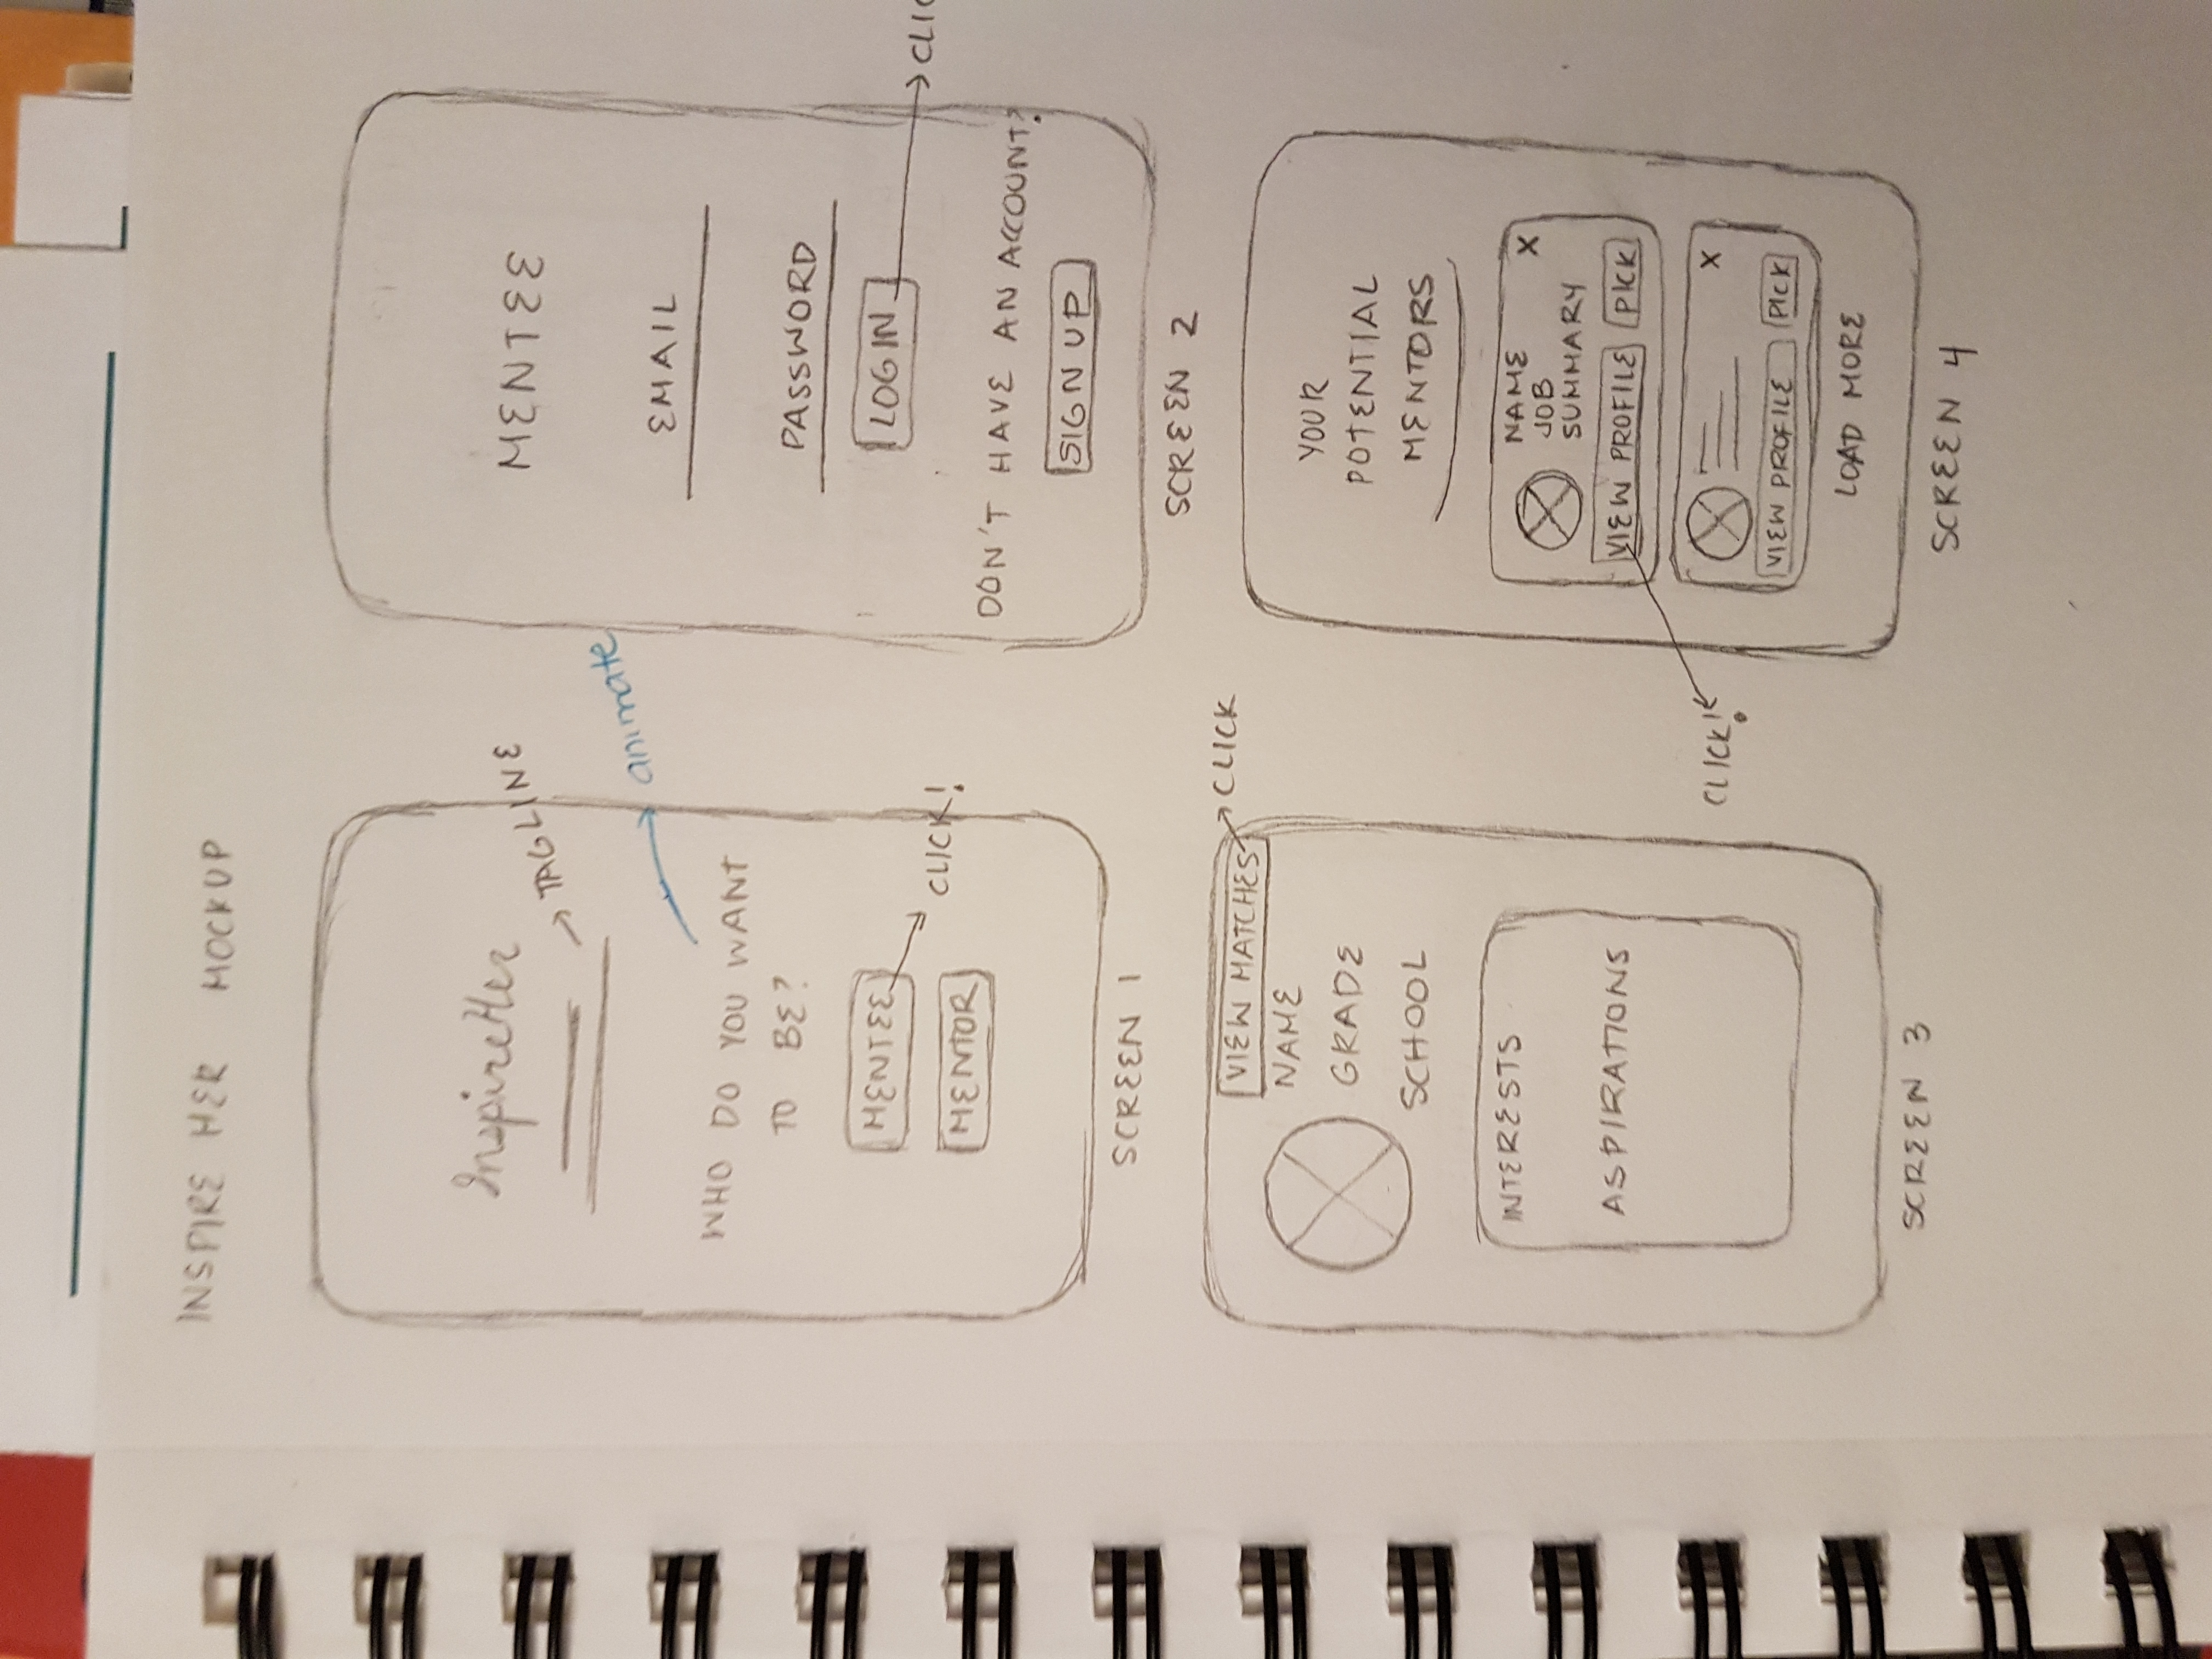 INSPIRE HER MOCKUP
InspireHer
TAGLINE
animate
WHO DO YOU WANT
TO BE?
MENTEE
CLICK!
MENTOR
SCREEN 1
MENTEE
EMAIL
PASSWORD
LOGIN
CLIC
DON'T HAVE AN ACCOUNT?
SIGN UP
SCREEN 2
VIEW MATCHES
CLICK
NAME
GRADE
SCHOOL
INTERESTS
ASPIRATIONS
SCREEN 3
YOUR
POTENTIAL
MENTORS
NAME X
JOB
SUMMARY
VIEW PROFILE PICK
CLICK!
X
VIEW PROFILE PICK
LOAD MORE
SCREEN 4